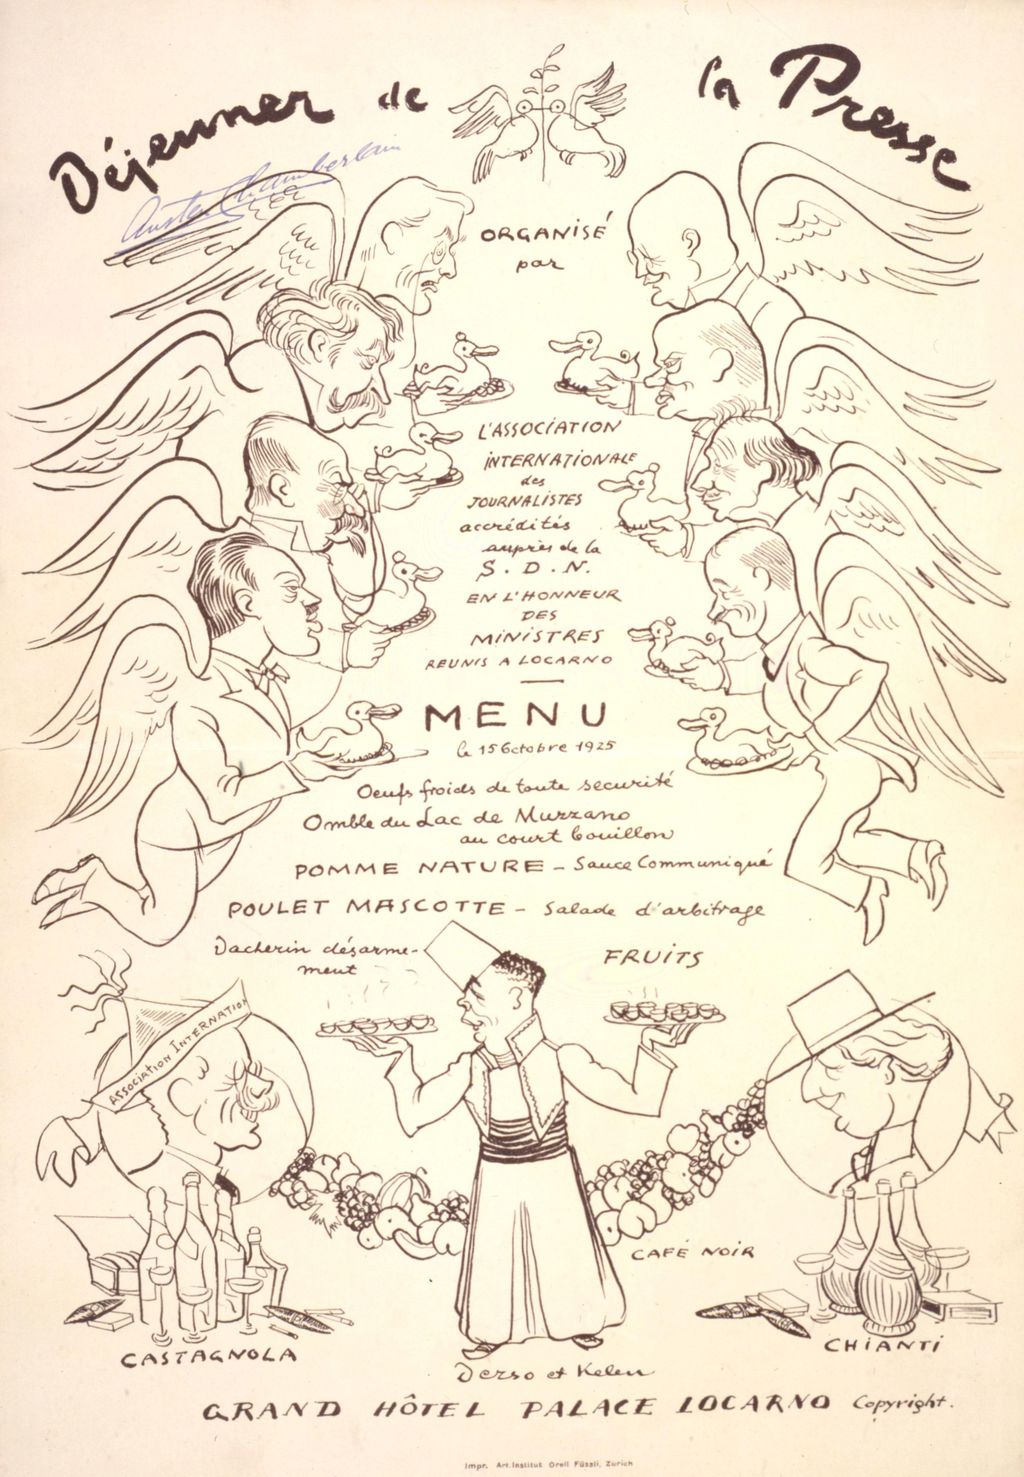 Déjeuner de la Presse
Austen Chamberlain
ORGANISÉ
par
L'ASSOCIATION
INTERNATIONALE
des
JOURNALISTES
accrédités
auprès de la
S. D. N.
EN L'HONNEUR
DES
MINISTRES
REUNIS A LOCARNO
MENU
le 15 Octobre 1925
Oeufs froids de toute securité
Omble du Lac de Muzzano
au court bouillon
POMME NATURE - Sauce Communiqué
POULET MASCOTTE - Salade d'arbitrage
Vacherin désarme-
ment
FRUITS
ASSOCIATION INTERNATION
CAFÉ NOIR
CASTAGNOLA
CHIANTI
Derso et Kelen
GRAND HÔTEL PALACE LOCARNO Copyright.
Impr. Art. Institut Orell Füssli, Zürich